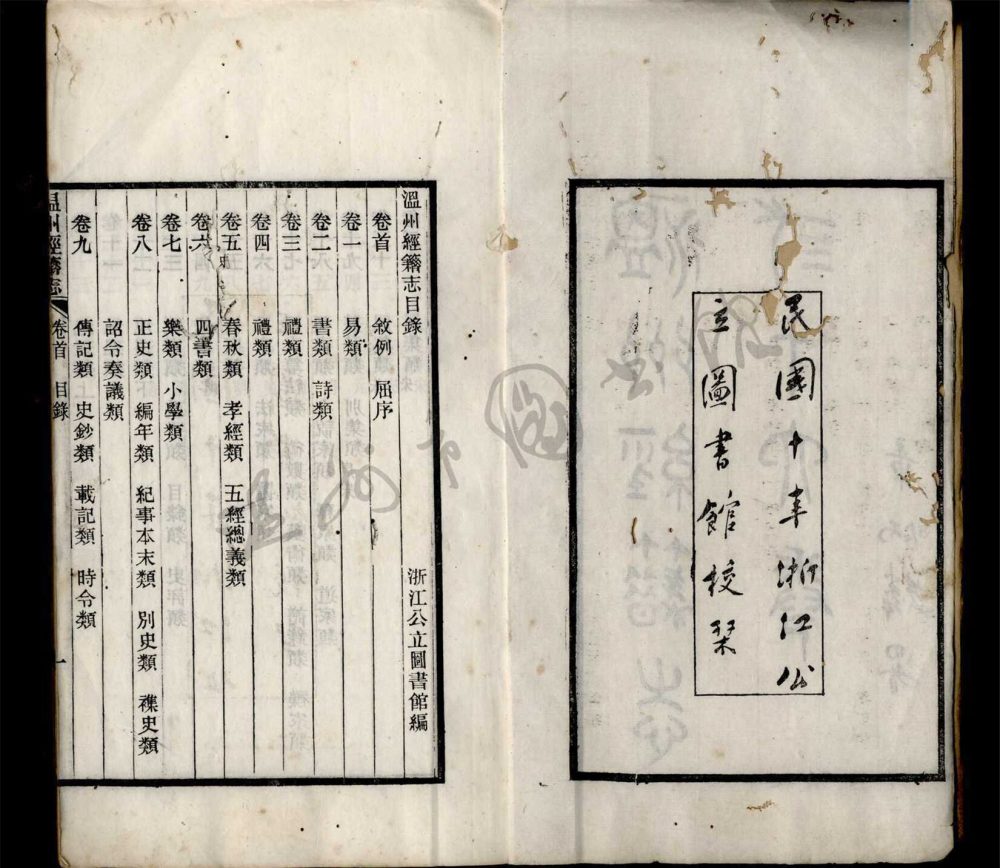 民國十年浙江公
立圖書館校栞
溫州經籍志目錄 浙江公立圖書館編
卷首 敘例 屈序
卷一 易類
卷二 書類 詩類
卷三 禮類
卷四 禮類
卷五 春秋類 孝經類 五經總義類
卷六 四書類
卷七 樂類 小學類
卷八 正史類 編年類 紀事本末類 別史類 襍史類
詔令奏議類
卷九 傳記類 史鈔類 載記類 時令類
溫州經籍志 卷首 目錄 一